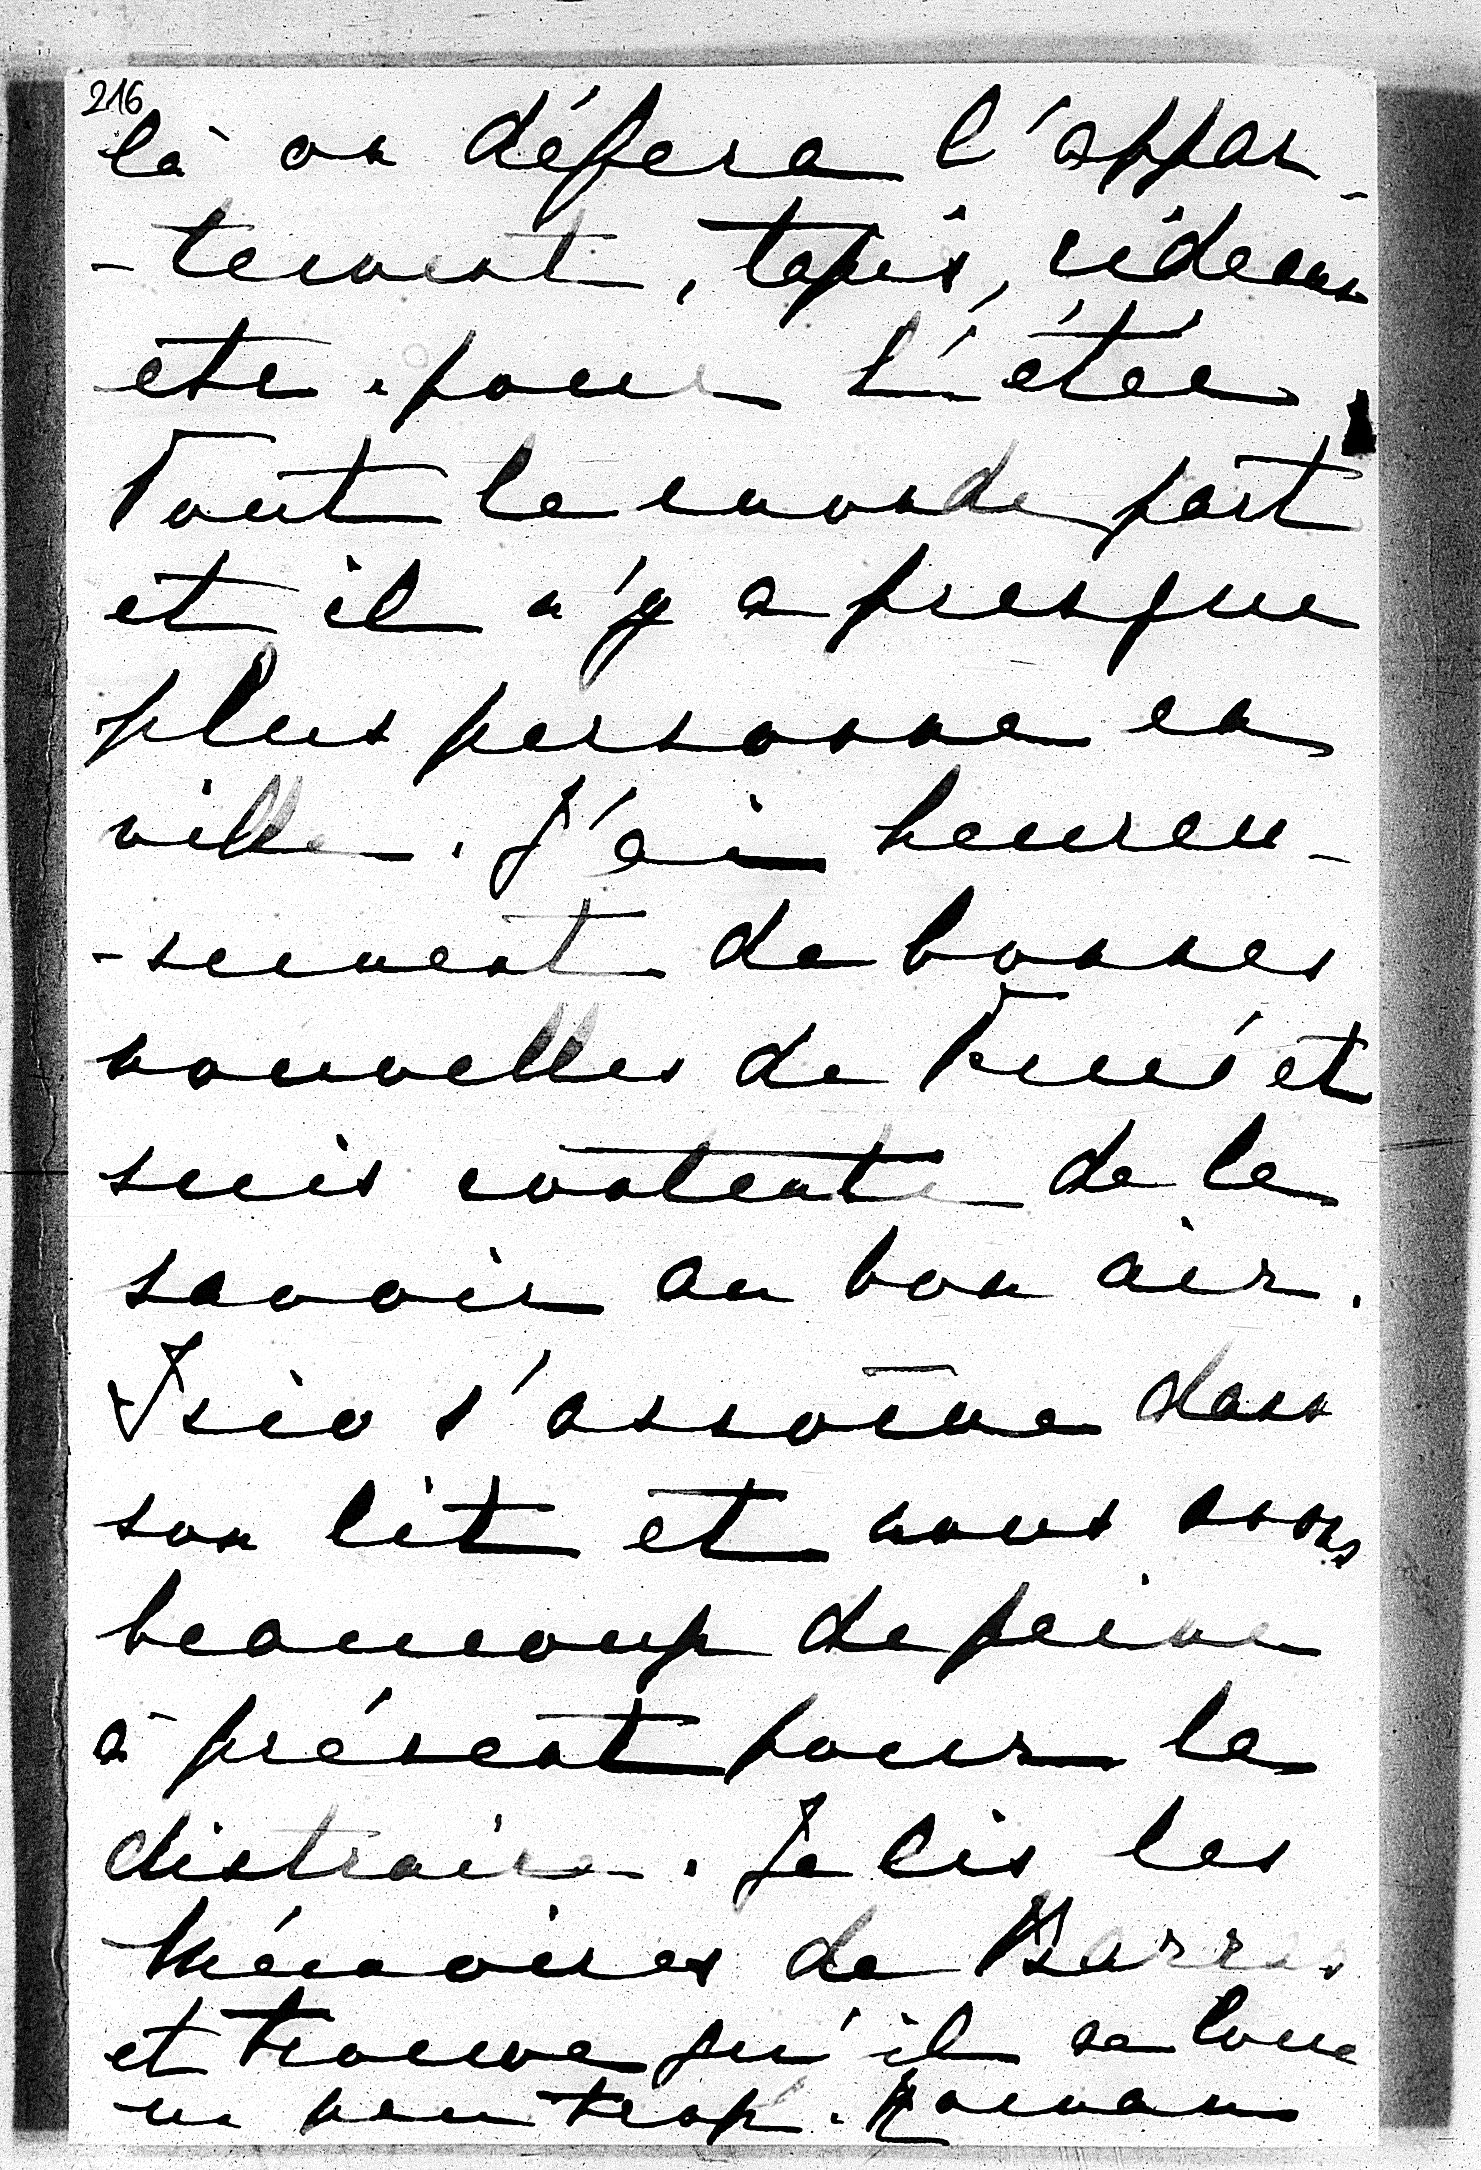 216
là on défera l'appar-
-tement, tapis, rideaux
etc. pour l'étée
Tout le monde part
et il n'y a presque
plus personne en
ville. J'ai heureu-
-sement de bonnes
nouvelles de et
suis contente de le
savoir au bon air.
s'assomme dans
son lit et nous avons
beaucoup de peine
à présent pour le
distraire. Je lis les
Mémoires de Barras
et trouve qu'il se loue
un peu trop.